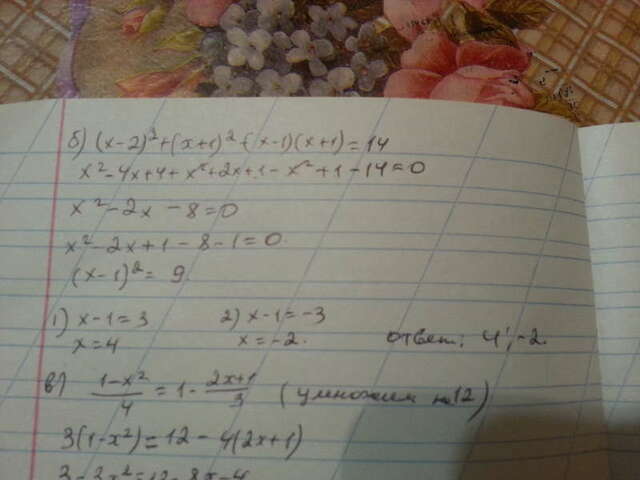 б) (x-2)²+(x+1)²-(x-1)(x+1)=14
x²-4x+4+x²+2x+1-x²+1-14=0
x²-2x-8=0
x²-2x+1-8-1=0.
(x-1)²=9.
1) x-1=3 2) x-1=-3
x=4 x=-2. ответ: 4; -2.
в) (1-x²)/4=1-(2x+1)/3 (умножим на 12)
3(1-x²)=12-4(2x+1)
3-3x²=12-8x-4